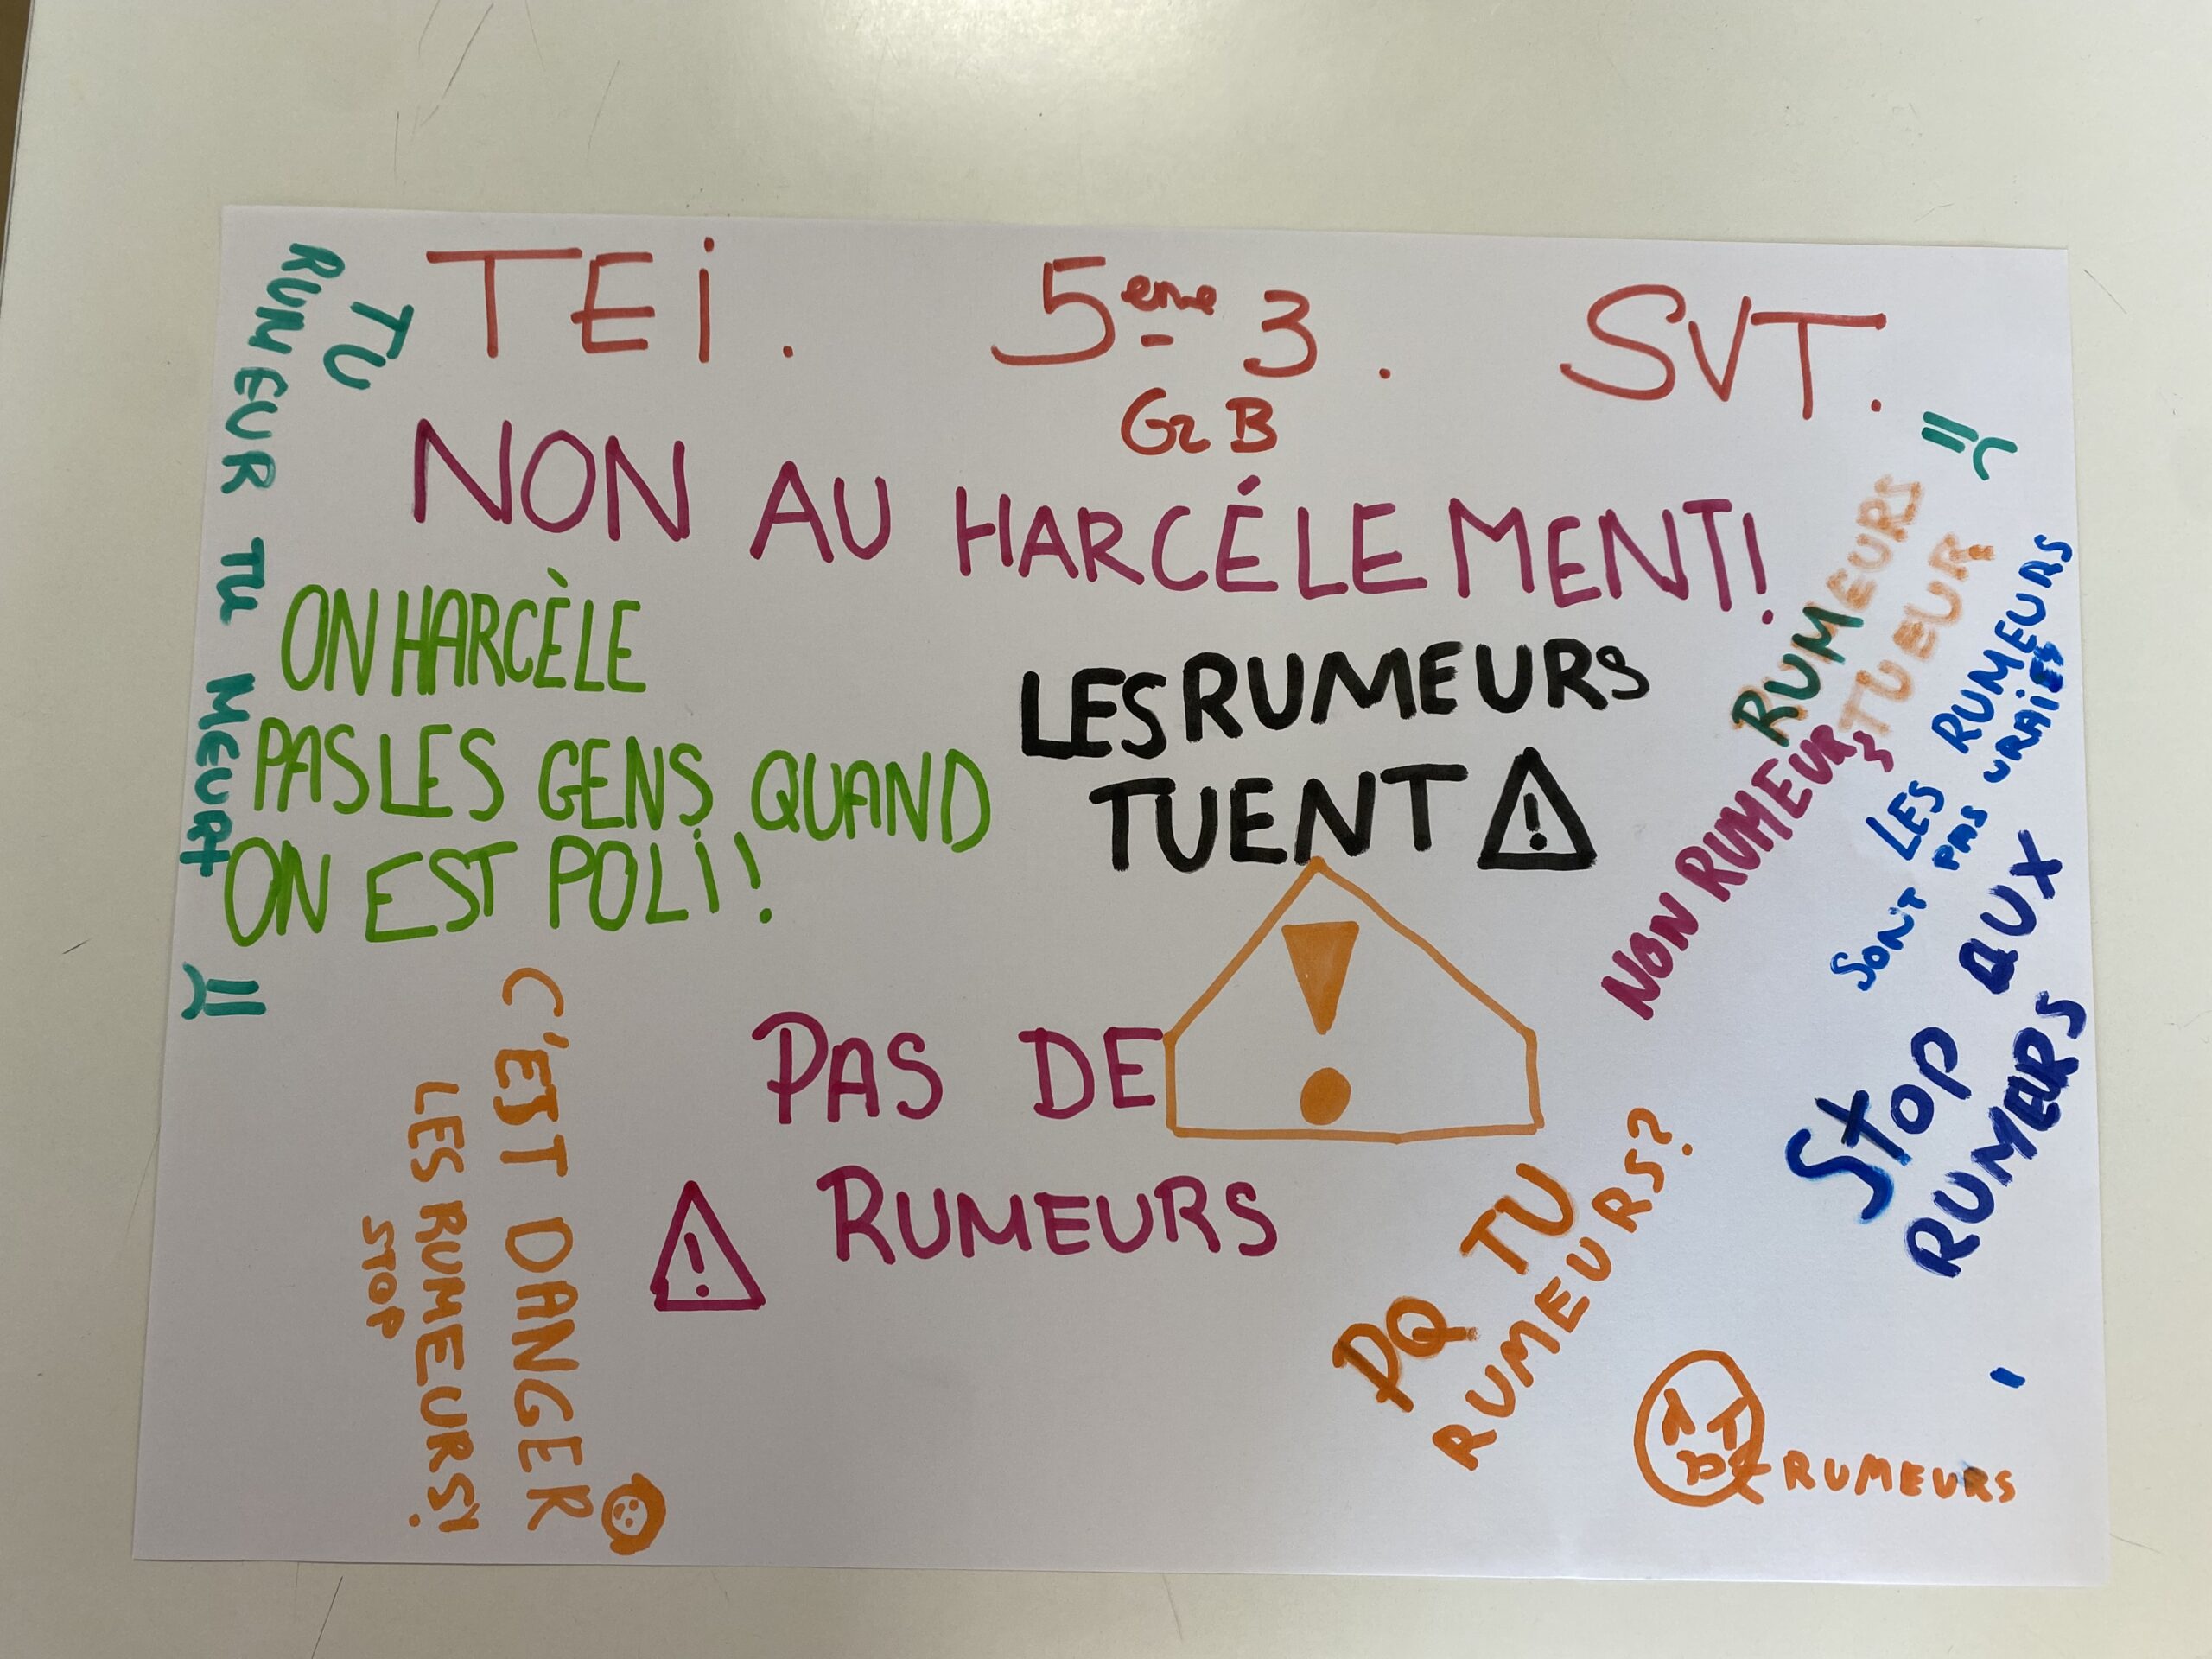 TEI. 5eme 3. SVT.
G2 B
NON AU HARCÉLEMENT!
TU
RUMEUR TU MEURT
ON HARCÈLE
PAS LES GENS QUAND
ON EST POLI!
LES RUMEURS
TUENT !
RUMEURS
TUEUR
NON RUMEURS
LES RUMEURS
SONT PAS VRAIES
STOP AUX
RUMEURS
!
PAS DE
! RUMEURS
C'EST DANGER
LES RUMEURS!
STOP
PQ TU
RUMEURS?
RUMEURS